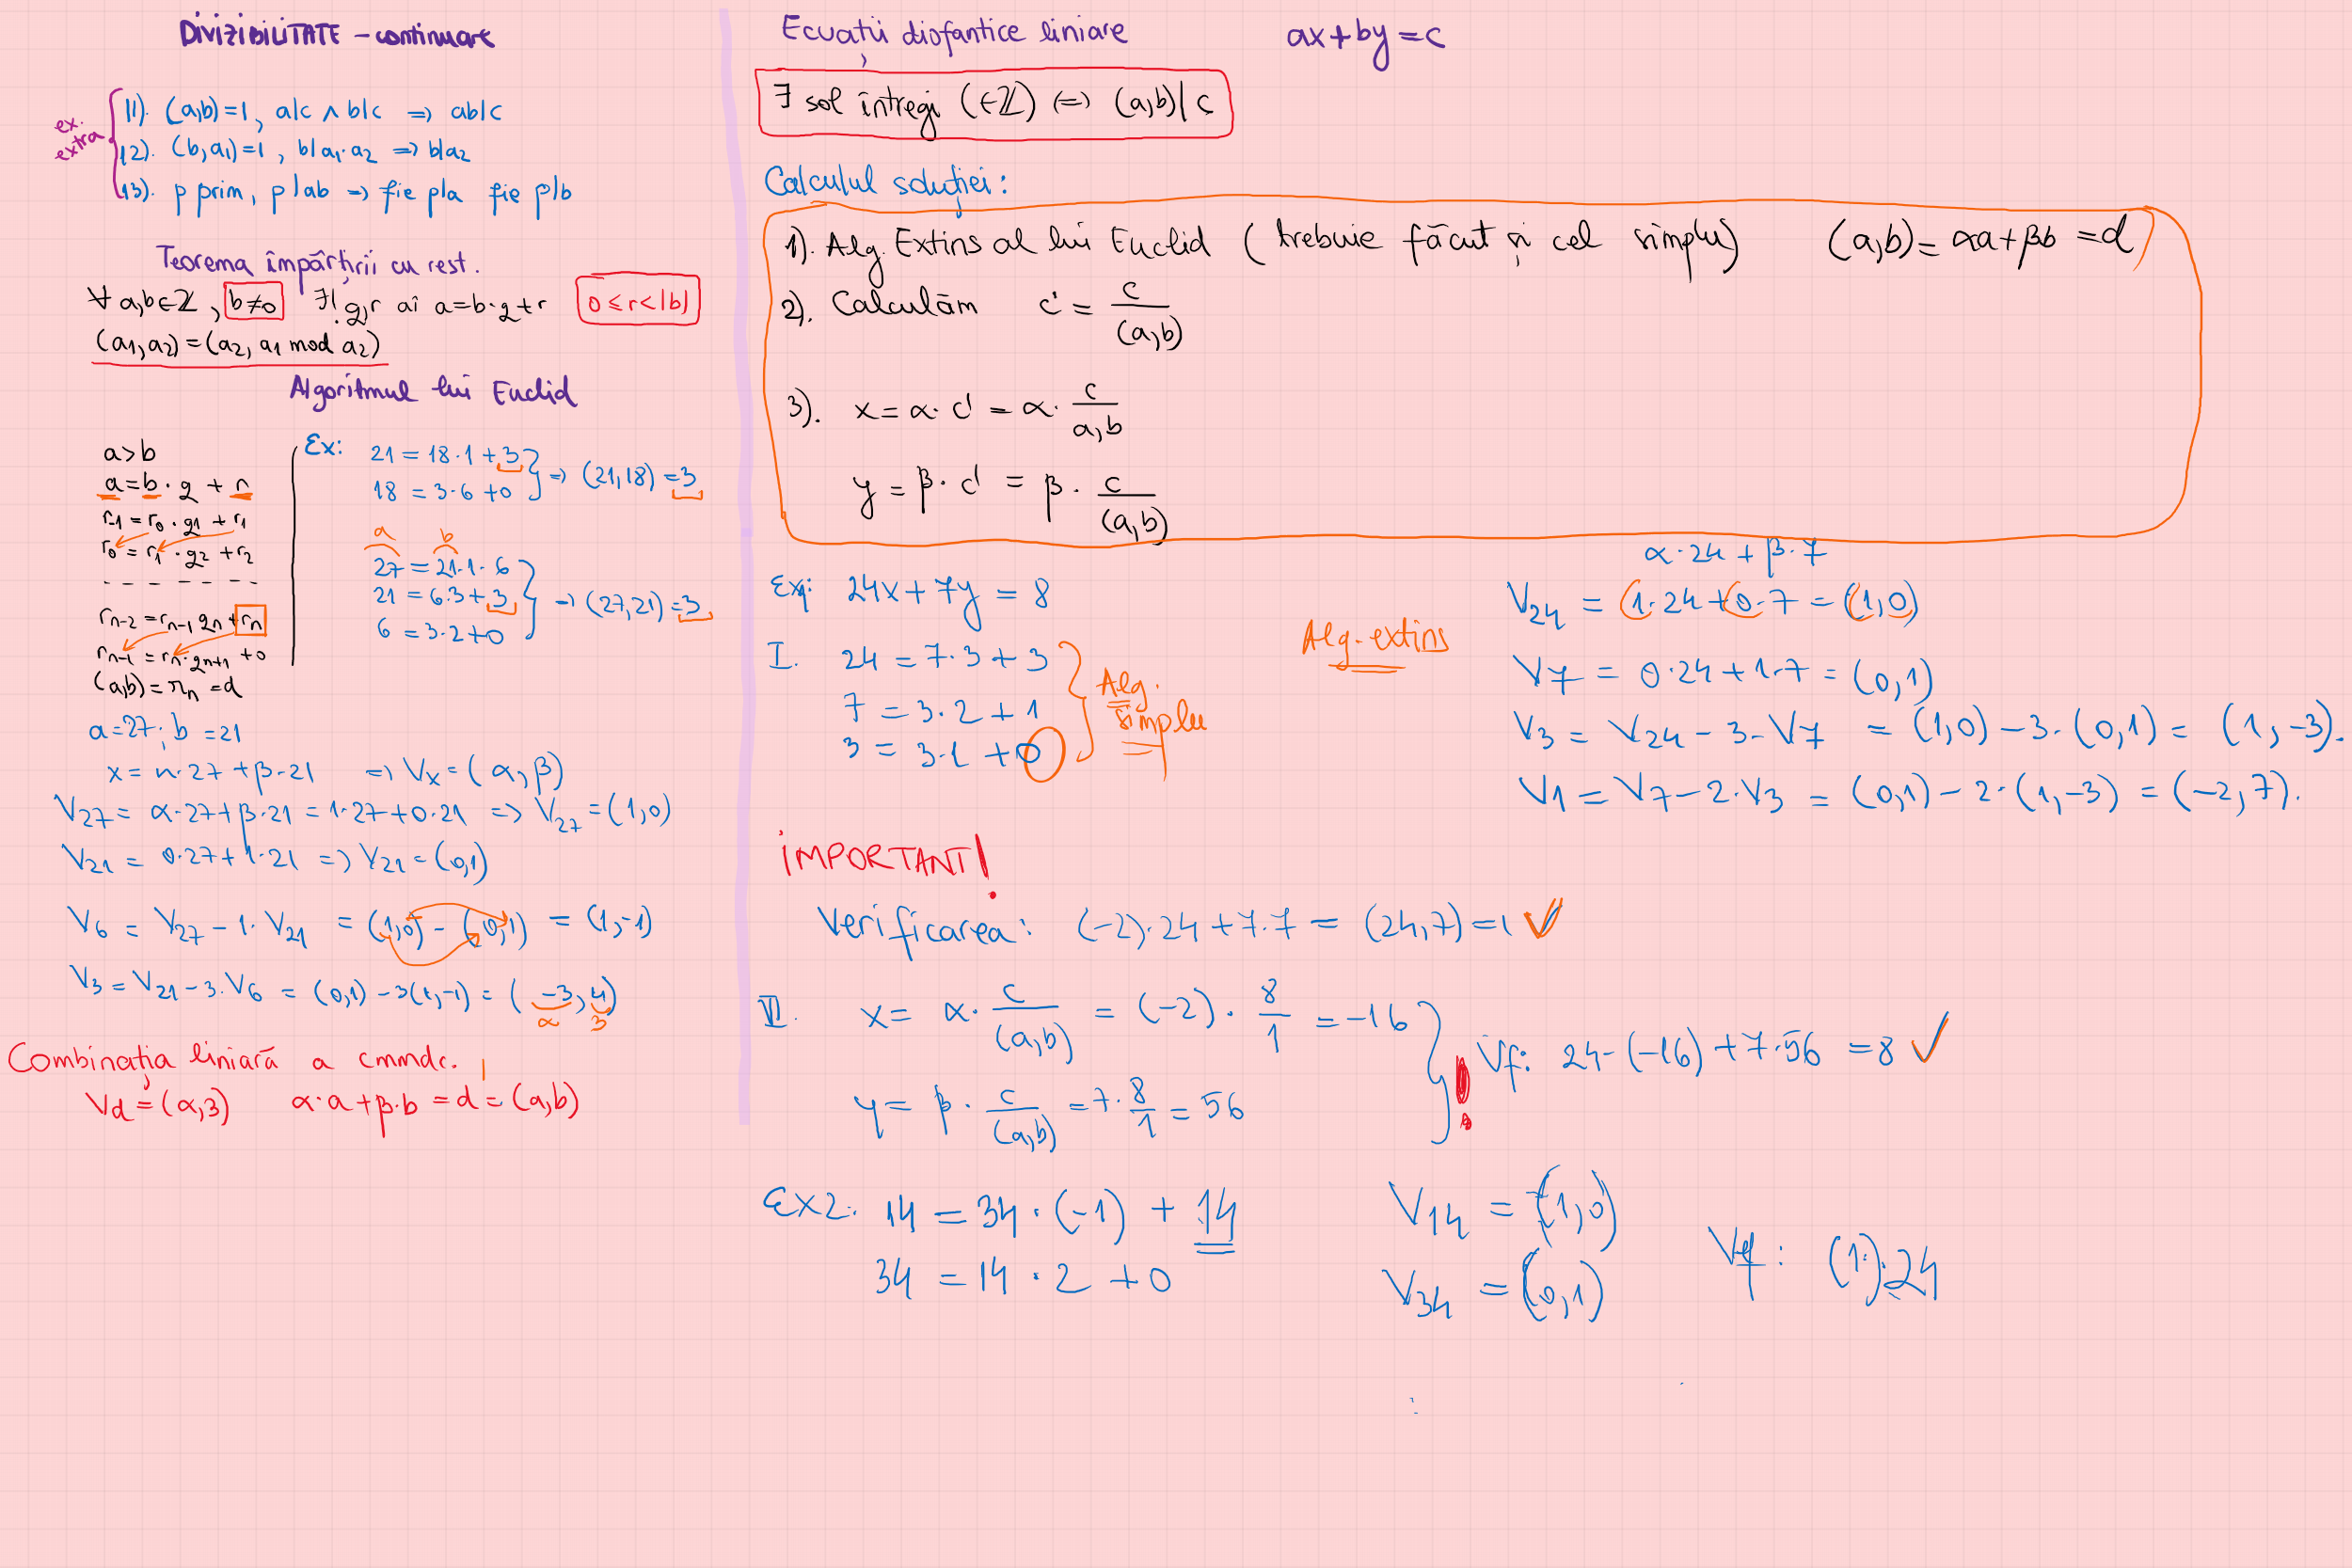 DIVIZIBILITATE - continuare
ex. extra
11). (a,b)=1, a|c ∧ b|c => ab|c
12). (b,a₁)=1, b|a₁·a₂ => b|a₂
13). p prim, p|ab => fie p|a fie p|b
Teorema împărțirii cu rest.
∀ a,b∈Z, b≠0 ∃! q,r aî a=b·q+r 0≤r<|b|
(a₁,a₂)=(a₂, a₁ mod a₂)
Algoritmul lui Euclid
a>b
a=b·q+r
r₋₁=r₀·q₁+r₁
r₀=r₁·q₂+r₂
- - - - - - -
rₙ₋₂=rₙ₋₁qₙ+rₙ
rₙ₋₁=rₙ·qₙ₊₁+0
(a,b)=rₙ=d
Ex: 21=18·1+3
18=3·6+0
=> (21,18)=3
a b
27=21·1·6
21=6·3+3
6=3·2+0
=> (27,21)=3
a=27; b=21
x=α·27+β·21 => Vx=(α,β)
V₂₇=α·27+β·21=1·27+0·21 => V₂₇=(1,0)
V₂₁=0·27+1·21 => V₂₁=(0,1)
V₆=V₂₇-1·V₂₁=(1,0)-(0,1)=(1,-1)
V₃=V₂₁-3·V₆=(0,1)-3(1,-1)=(-3,4)
α 3
Combinația liniară a cmmdc.
Vd=(α,3) α·a+β·b=d=(a,b)
Ecuații diofantice liniare ax+by=c
∃ sol întregi (∈Z) <=> (a,b)|c
Calculul soluției:
1). Alg. Extins al lui Euclid (trebuie făcut și cel simplu) (a,b)=αa+βb=d
2). Calculăm c'=c/(a,b)
3). x=α·c'=α·c/a,b
y=β·c'=β·c/(a,b)
Ex1: 24x+7y=8
I. 24=7·3+3
7=3·2+1
3=3·1+0
Alg. simplu
Alg. extins
α·24+β·7
V₂₄=1·24+0·7=(1,0)
V₇=0·24+1·7=(0,1)
V₃=V₂₄-3·V₇=(1,0)-3·(0,1)=(1,-3).
V₁=V₇-2·V₃=(0,1)-2·(1,-3)=(-2,7).
IMPORTANT!
Verificarea: (-2)·24+7·7=(24,7)=1 ✓
II. x=α·c/(a,b)=(-2)·8/1=-16
y=β·c/(a,b)=7·8/1=56
! Vf: 24-(-16)+7·56=8 ✓
Ex2: 14=34·(-1)+14
34=14·2+0
V₁₄=(1,0)
V₃₄=(0,1)
Vf: (1·)·24